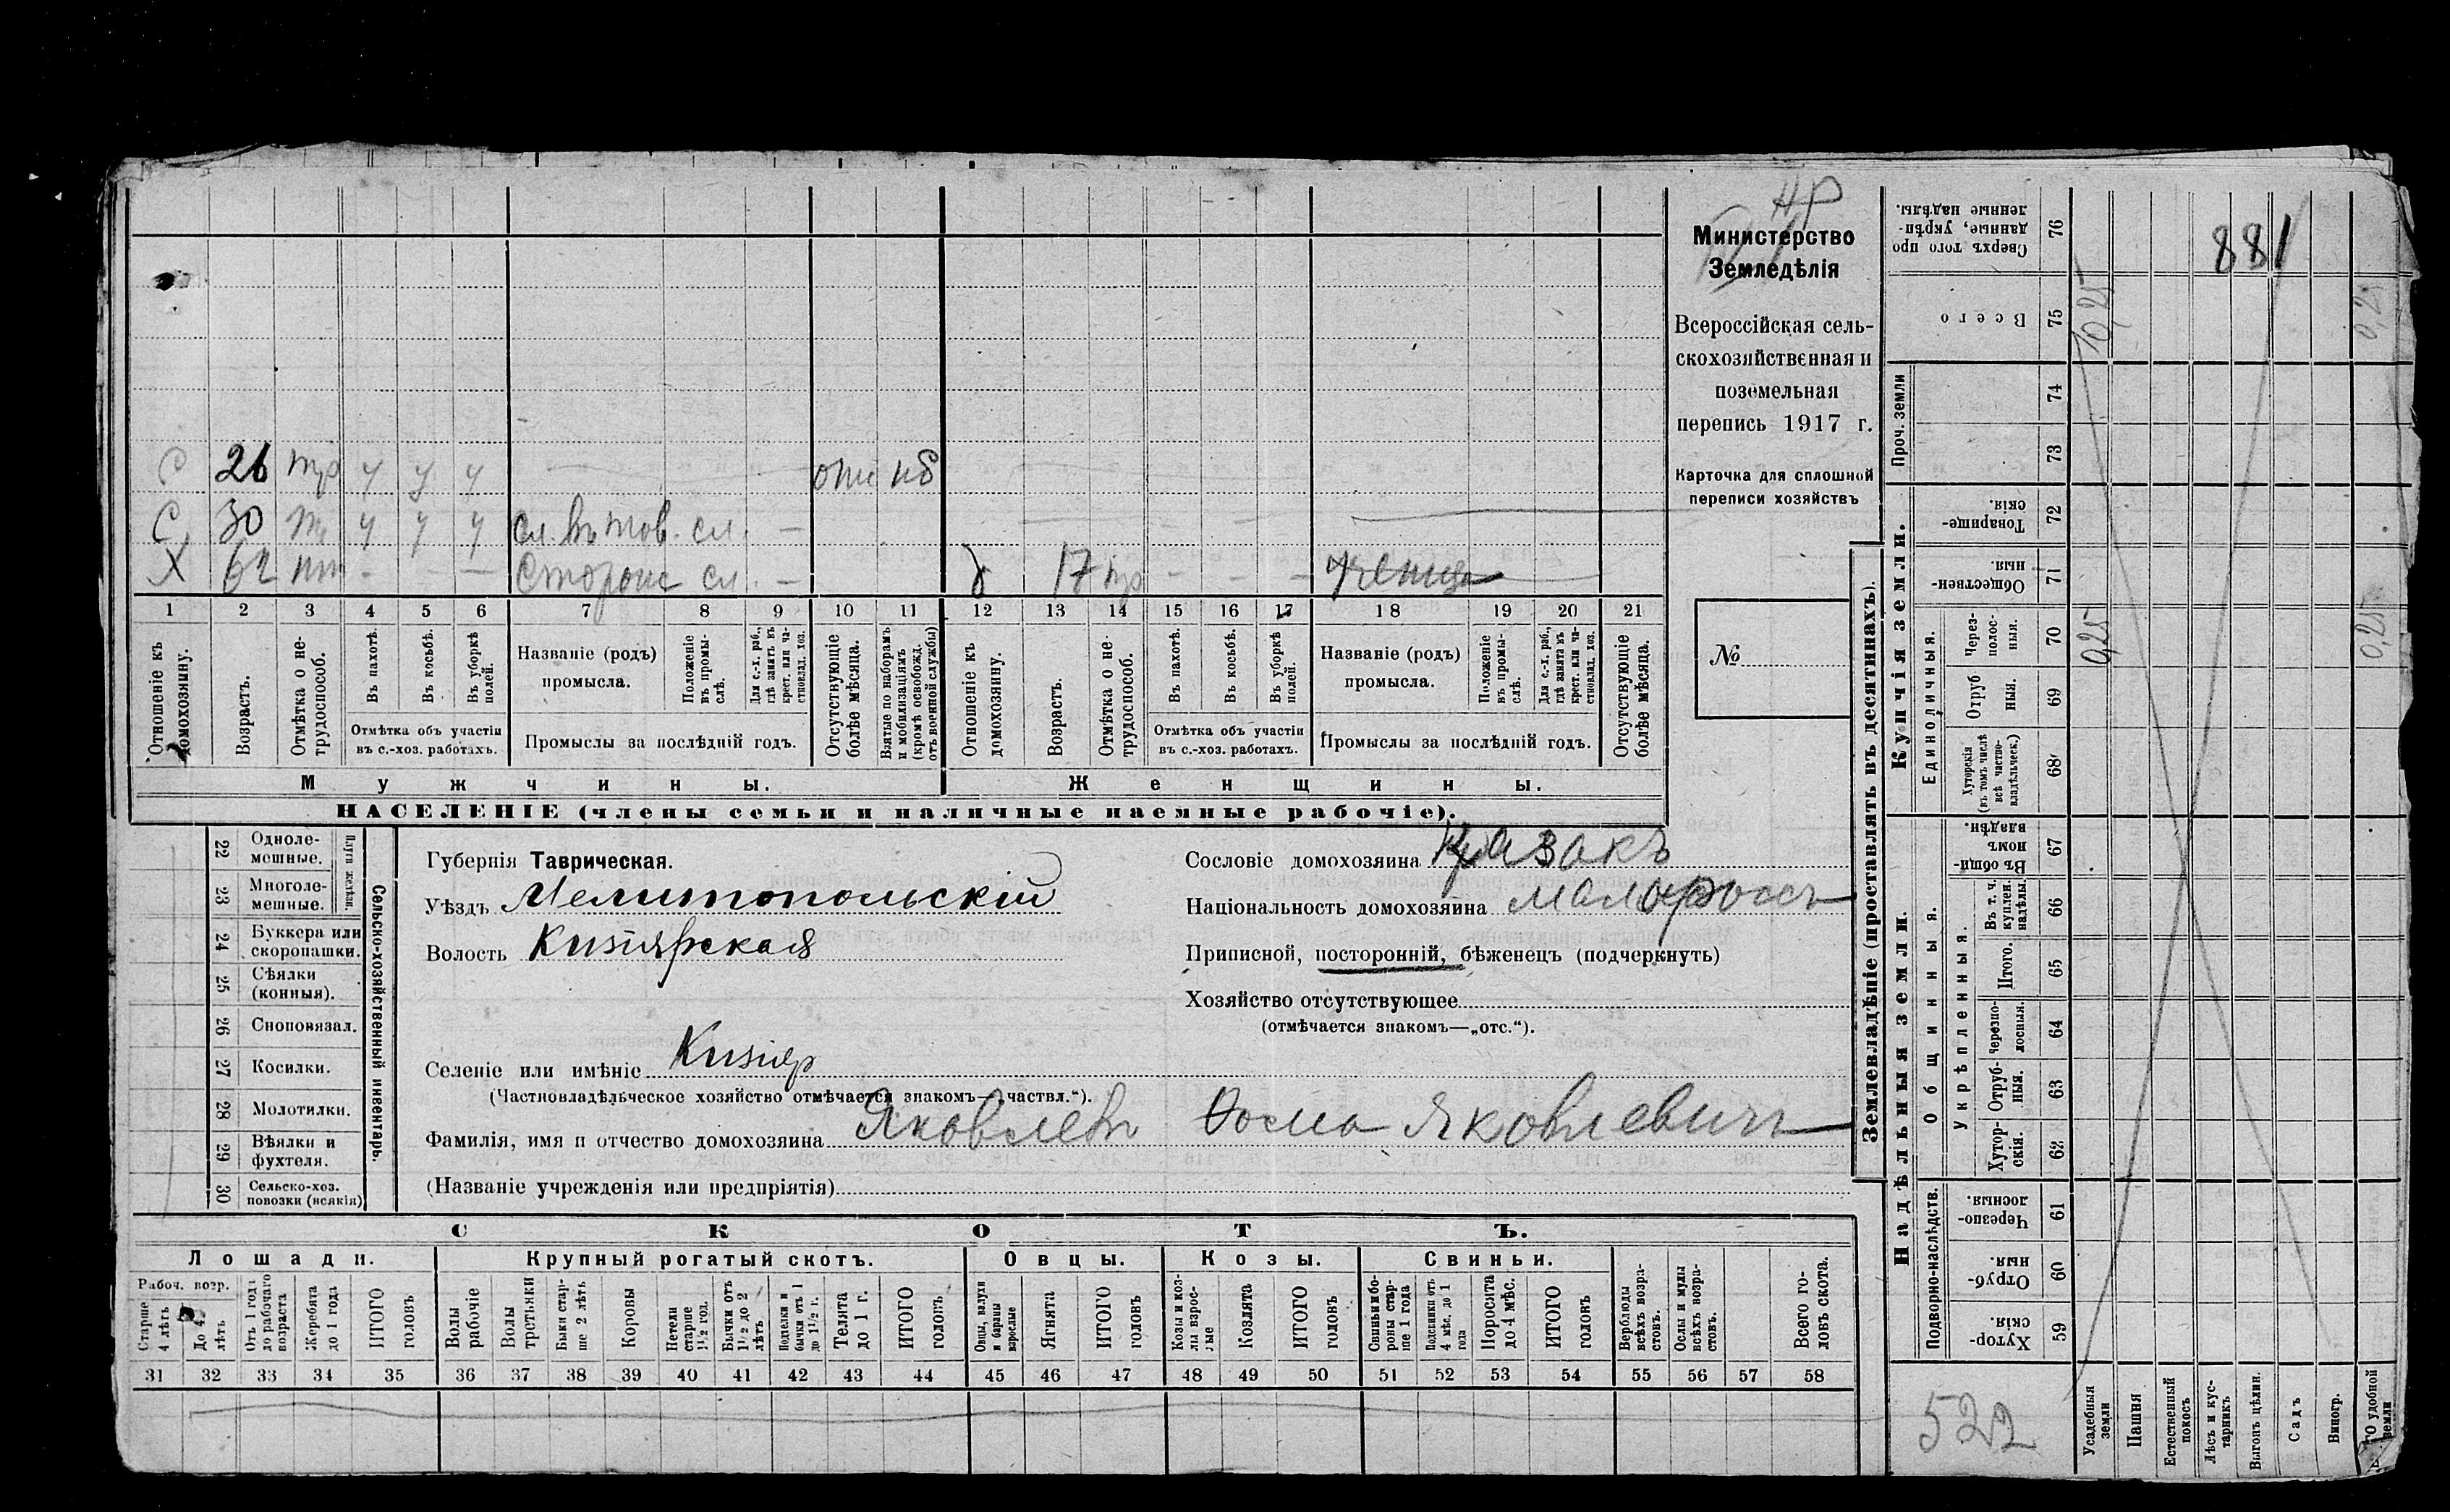 НР
881
Министерство
Земледѣлія
Всероссійская сель-
скохозяйственная и
поземельная
перепись 1917 г.
Карточка для сплошной
переписи хозяйствъ
№
С 26 тр у у у отс нб
С 30 у у у сл. въ тов. сл. —
Х 62 — — — сл. — 17 — — — ученица
1 2 3 4 5 6 7 8 9 10 11 12 13 14 15 16 17 18 19 20 21
Отношеніе къ домохозяину.
Возрастъ.
Отмѣтка о не-трудоспособ.
Въ пахотѣ.
Въ косьбѣ.
Въ уборкѣ полей.
Отмѣтка объ участіи
въ с.-хоз. работахъ.
Названіе (родъ)
промысла.
Положеніе въ промы-слѣ.
Для с.-х. раб., гдѣ занятъ въ крест. или ча-стновлад. хоз.
Промыслы за послѣдній годъ.
Отсутствующіе болѣе мѣсяца.
Взятые по наборамъ и мобилизаціямъ (кромѣ освобожд. отъ военной службы)
Отношеніе къ домохозяину.
Возрастъ.
Отмѣтка о не-трудоспособ.
Въ пахотѣ.
Въ косьбѣ.
Въ уборкѣ полей.
Отмѣтка объ участіи
въ с.-хоз. работахъ.
Названіе (родъ)
промысла.
Положеніе въ промы-слѣ.
Для с.-х. раб., гдѣ занята въ крест. или ча-стновлад. хоз.
Промыслы за послѣдній годъ.
Отсутствующіе болѣе мѣсяца.
Мужчины. Женщины.
НАСЕЛЕНІЕ (члены семьи и наличные наемные рабочіе).
Сельско-хозяйственный инвентарь.
Плуги желѣзн.
22 Одноле-мешные.
23 Многоле-мешные.
24 Буккера или скоропашки.
25 Сѣялки (конныя).
26 Сноповязал.
27 Косилки.
28 Молотилки.
29 Вѣялки и фухтеля.
30 Сельско-хоз. повозки (всякія)
Губернія Таврическая.
Уѣздъ Мелитопольскій
Волость Кизіярская
Селеніе или имѣніе Кизіяр
(Частновладѣльческое хозяйство отмѣчается знакомъ—„частвл.“).
Фамилія, имя и отчество домохозяина Яковлевъ Фома Яковлевичъ
(Названіе учрежденія или предпріятія)
Сословіе домохозяина Казакъ
Національность домохозяина малороссъ
Приписной, посторонній, бѣженецъ (подчеркнуть)
Хозяйство отсутствующее
(отмѣчается знакомъ—„отс.“).
СКОТЪ.
Лошади. Крупный рогатый скотъ. Овцы. Козы. Свиньи.
Рабоч. возр.
Старше 4 лѣтъ
До 4 лѣтъ
Отъ 1 года до рабочаго возраста
Жеребята до 1 года
ИТОГО головъ
Волы рабочіе
Волы третьяки
Быки стар-ше 2 лѣтъ
Коровы
Нетели старше 1½ год.
Бычки отъ 1½ до 2 лѣтъ
Подтелки и бычки отъ 1 до 1½ г.
Телята до 1 г.
ИТОГО головъ
Овцы, валухи и бараны взрослые
Ягнята
ИТОГО головъ
Козы и коз-лы взрос-лые
Козлята
ИТОГО головъ
Свиньи и бо-ровы стар-ше 1 года
Подсвинки отъ 4 мѣс. до 1 года
Поросята до 4 мѣс.
ИТОГО головъ
Верблюды всѣхъ возра-стовъ.
Ослы и мулы всѣхъ возра-стовъ.
Всего го-ловъ скота.
31 32 33 34 35 36 37 38 39 40 41 42 43 44 45 46 47 48 49 50 51 52 53 54 55 56 57 58
Землевладѣніе (проставлять въ десятинахъ).
Сверхъ того про данные, укрѣп-ленные надѣлы. 76
Всего 75 0,25
Проч. земли
74
73
Купчія земли.
Товарище-скія. 72
Обществен-ныя. 71
Единоличныя.
Через-полос-ныя. 70 0,25 0,25
Отруб ныя. 69
Хуторскія (въ томъ числѣ всѣ частно-владѣльческ.) 68
Надѣльныя земли.
Въ общин номъ владѣн. 67
Общинныя.
Укрѣпленныя.
Въ т. ч. куплен. надѣлы. 66
Итого. 65
Черезпо-лосныя. 64
Отруб-ныя. 63
Хутор-скія. 62
Подворно-наслѣдств.
Черезпо-лосныя. 61
Отруб-ныя. 60
Хутор-скія. 59
522
Усадебныя земли
Пашня
Естественный покосъ
Лѣсъ и кус-тарникъ
Выгонъ цѣлин.
Садъ
Виногр.
удобной земли